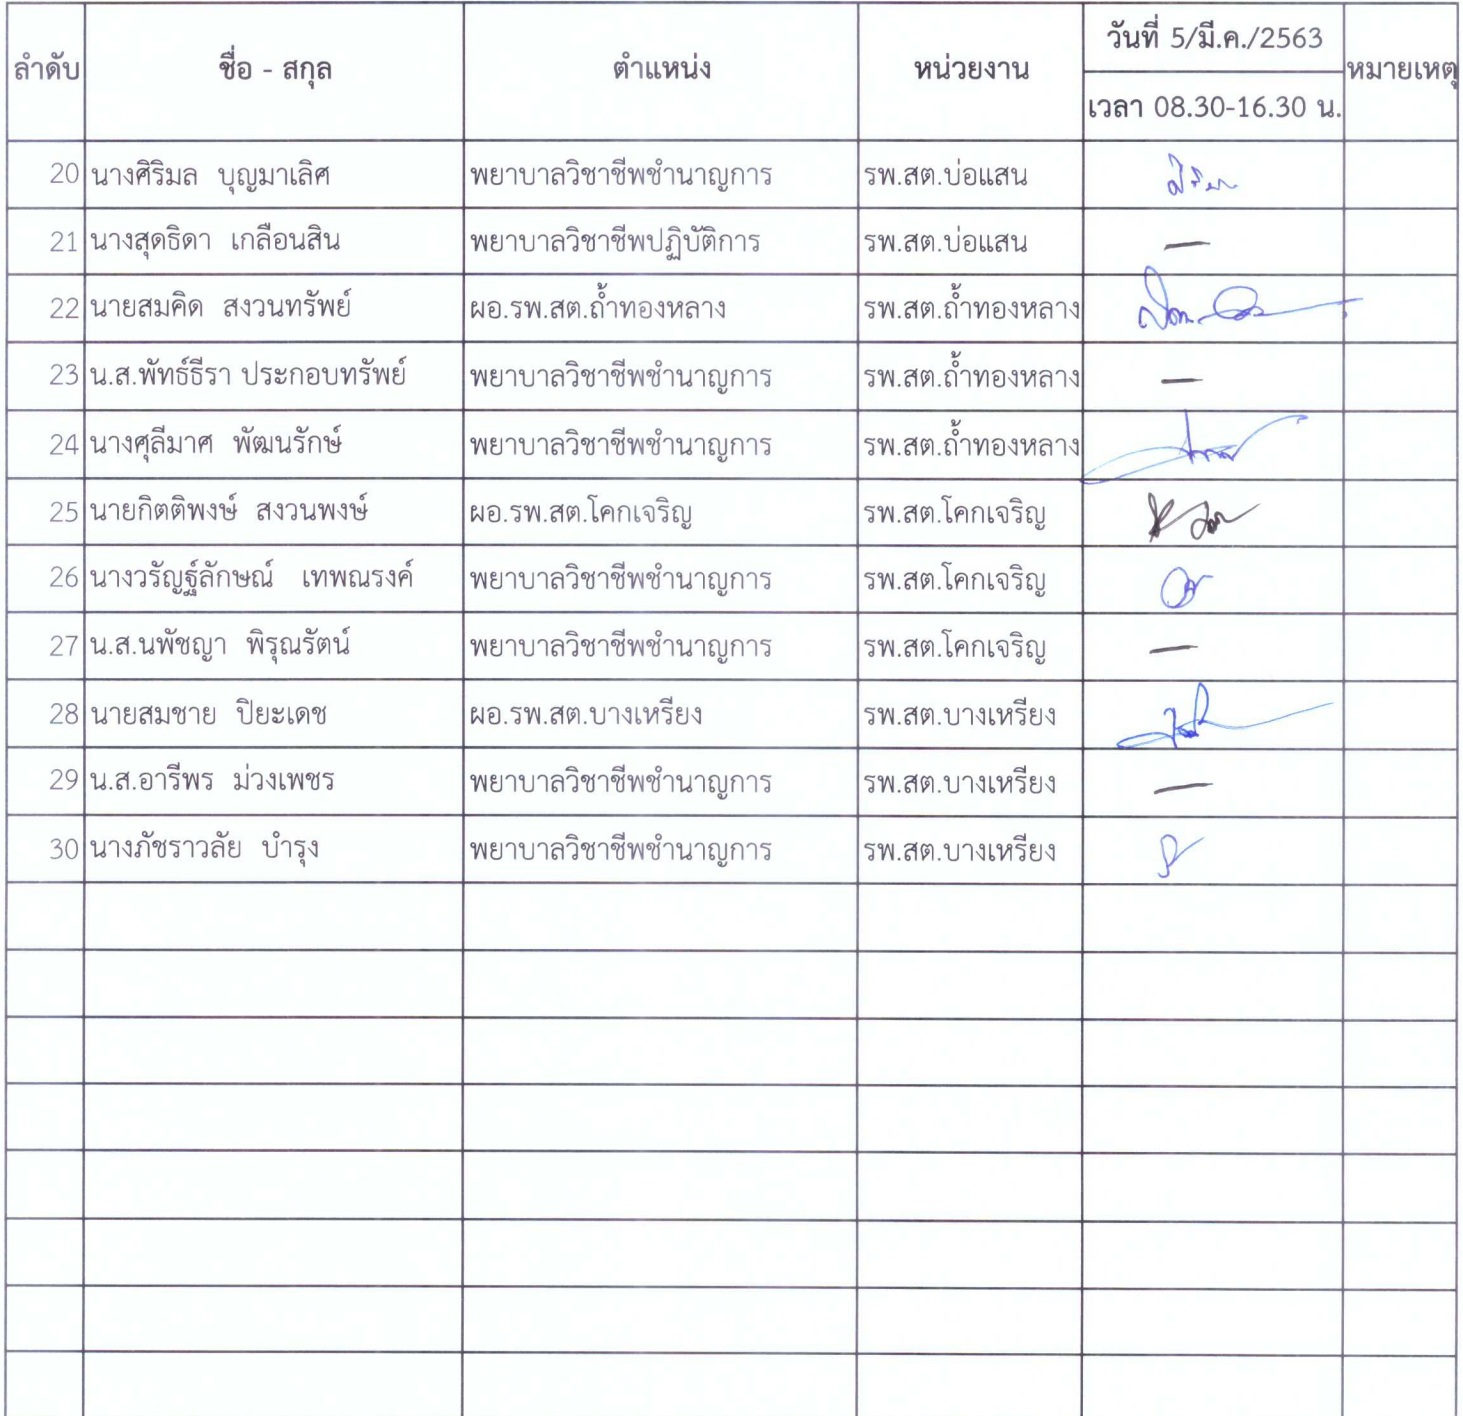 ลำดับ ชื่อ - สกุล ตำแหน่ง หน่วยงาน วันที่ 5/มี.ค./2563 หมายเหตุ
เวลา 08.30-16.30 น.
20 นางศิริมล บุญมาเลิศ พยาบาลวิชาชีพชำนาญการ รพ.สต.บ่อแสน
21 นางสุดธิดา เกลือนสิน พยาบาลวิชาชีพปฏิบัติการ รพ.สต.บ่อแสน —
22 นายสมคิด สงวนทรัพย์ ผอ.รพ.สต.ถ้ำทองหลาง รพ.สต.ถ้ำทองหลาง
23 น.ส.พัทธ์ธีรา ประกอบทรัพย์ พยาบาลวิชาชีพชำนาญการ รพ.สต.ถ้ำทองหลาง —
24 นางศุลีมาศ พัฒนรักษ์ พยาบาลวิชาชีพชำนาญการ รพ.สต.ถ้ำทองหลาง
25 นายกิตติพงษ์ สงวนพงษ์ ผอ.รพ.สต.โคกเจริญ รพ.สต.โคกเจริญ
26 นางวรัญฐ์ลักษณ์ เทพณรงค์ พยาบาลวิชาชีพชำนาญการ รพ.สต.โคกเจริญ
27 น.ส.นพัชญา พิรุณรัตน์ พยาบาลวิชาชีพชำนาญการ รพ.สต.โคกเจริญ —
28 นายสมชาย ปิยะเดช ผอ.รพ.สต.บางเหรียง รพ.สต.บางเหรียง
29 น.ส.อารีพร ม่วงเพชร พยาบาลวิชาชีพชำนาญการ รพ.สต.บางเหรียง —
30 นางภัชราวลัย บำรุง พยาบาลวิชาชีพชำนาญการ รพ.สต.บางเหรียง